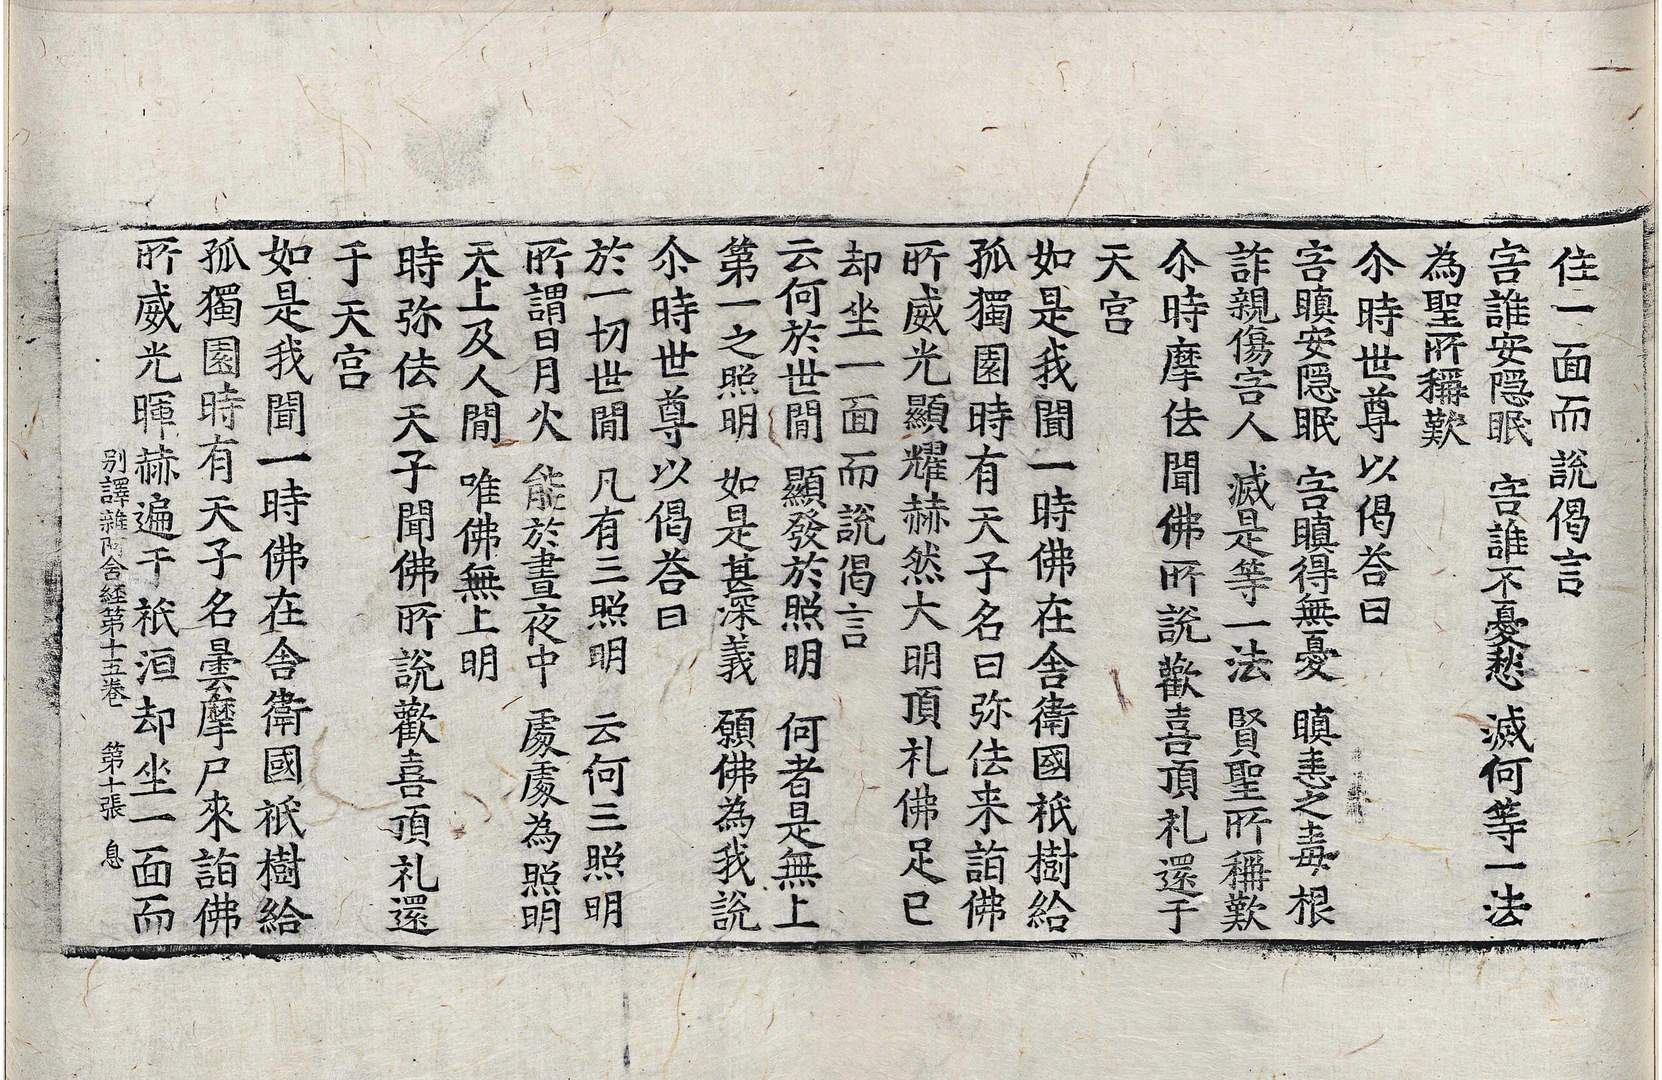 住一面而說偈言
害誰安隱眠　害誰不憂愁　滅何等一法
為聖所稱歎
尒時世尊以偈荅曰
害瞋安隱眠　害瞋得無憂　瞋恚之毒根
詐親傷害人　滅是等一法　賢聖所稱歎
尒時摩佉聞佛所說歡喜頂礼還于
天宮
如是我聞一時佛在舍衛國祇樹給
孤獨園時有天子名曰弥佉来詣佛
所威光顯耀赫然大明頂礼佛足已
却坐一面而說偈言
云何於世間　顯發於照明　何者是無上
第一之照明　如是甚深義　願佛為我說
尒時世尊以偈荅曰
於一切世間　凡有三照明　云何三照明
所謂日月火　能於晝夜中　處處為照明
天上及人間　唯佛無上明
時弥佉天子聞佛所說歡喜頂礼還
于天宮
如是我聞一時佛在舍衛國祇樹給
孤獨園時有天子名曇摩尸來詣佛
所威光暉赫遍于祇洹却坐一面而
别譯雜阿舍經第十五卷　第十張　息